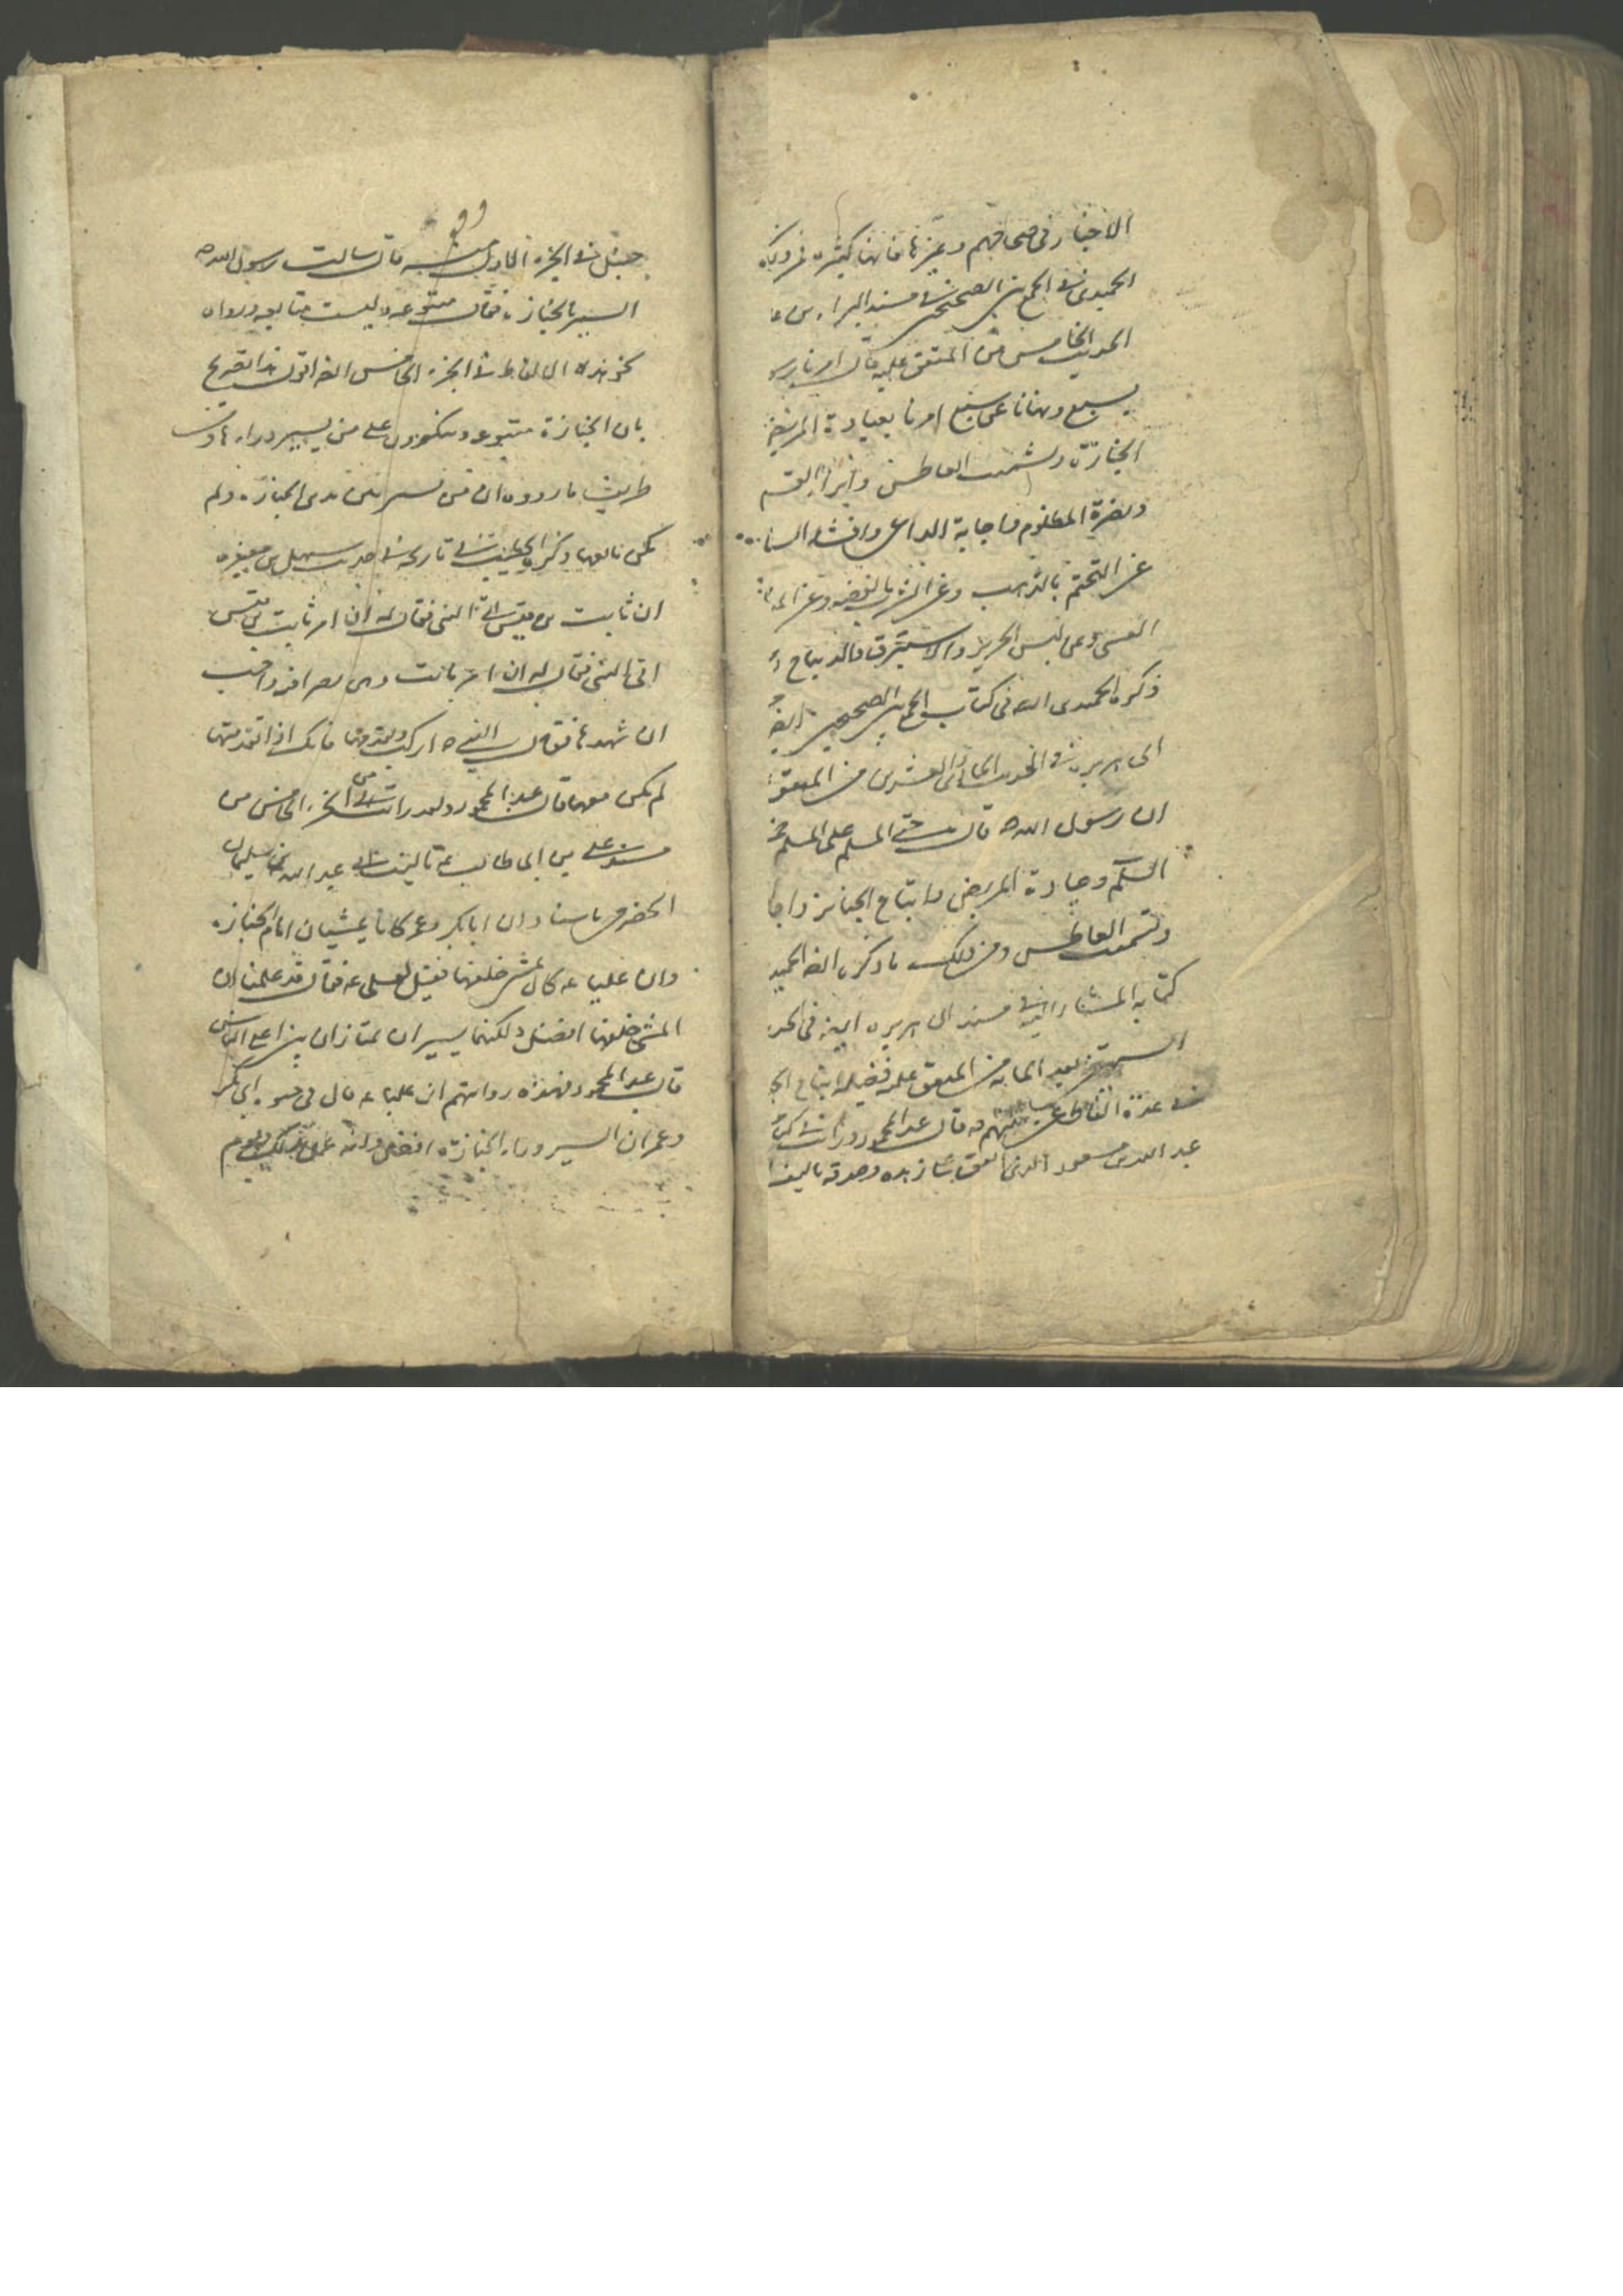 الاخبار فى صحاحهم وغيرها فانها كثيرة فمن ذلك
الحميدى فى الجمع بين الصحيحين فى مسند البراء بن عا
الحديث الخامس من المتفق عليه قال امرنا رسو
بسبع ونهانا عن سبع امرنا بعيادة المريض
الجنازة وتشميت العاطس وابرار القسم
ونصرة المظلوم واجابة الداعى وافشاء السلا
عن التختم بالذهب وعن الشرب بالفضه وعن الميا
القسى وعن لبس الحرير والاستبرق والديباج
ذكره الحميدى الله فى كتاب الجمع بين الصحيحين ايضا
ابى هريره فى الحديث الحادى والعشرين من المتفق
ان رسول الله ص قال حق المسلم على المسلم خمس
السلام وعيادة المريض واتباع الجنايز واجا
وتشميت العاطس ومن ذلك ما ذكره ايضا الحميد
كتابه المشار اليه فى مسند ابى هريره ايضا فى الحد
الستين بعد المايه من المتفق عليه فضيلة اتباع الجنا
فى عدة الفاظ قال عبد المحمود ورايت فى كتاب
عبد الله بن مسعود
حنبل فى الجزء الاول قال سالت رسول الله ص
السير بالجنازه فقال متبوعه وليست بتابعه ورواه
نحو هذه الالفاظ فى الجزء الخامس ايضا اقول هذا تصريح
بان الجنازة متبوعه وينكرون على من يسير وراءها ومن
طريف ما رووه ان من سير بين يدى الجنازه ولم
يكن تابعها وذكر الخطيب فى تاريخه فى حديث سهل بن مغيره
ان ثابت بن قيس اتى النبى فقال له ان ام ثابت بن قيس
اتى النبى فقال له ان امه ماتت وهى نصرانيه واحب
ان شهدها فقال النبى ص اركب وتقدمها فانك اذا تقدمتها
لم تكن معها قال عبد المحمود ولقد رايت فى الجزء الخامس من
مسند على بن ابى طالب ع تاليف عبد الله بن سليمان
الحضرمى باسناده ان ابا بكر وعمر كانا يمشيان امام الجنازه
وان عليا ع كان يمشى خلفها فقيل لعلى ع فقال قد علمنا ان
المشى خلفها افضل ولكنهما يسيران يمتازان على الناس
قال عبد المحمود فهذه روايتهم ان عليا ع قال فى حيوه ابى بكر
وعمر ان السير وراء الجنازة افضل